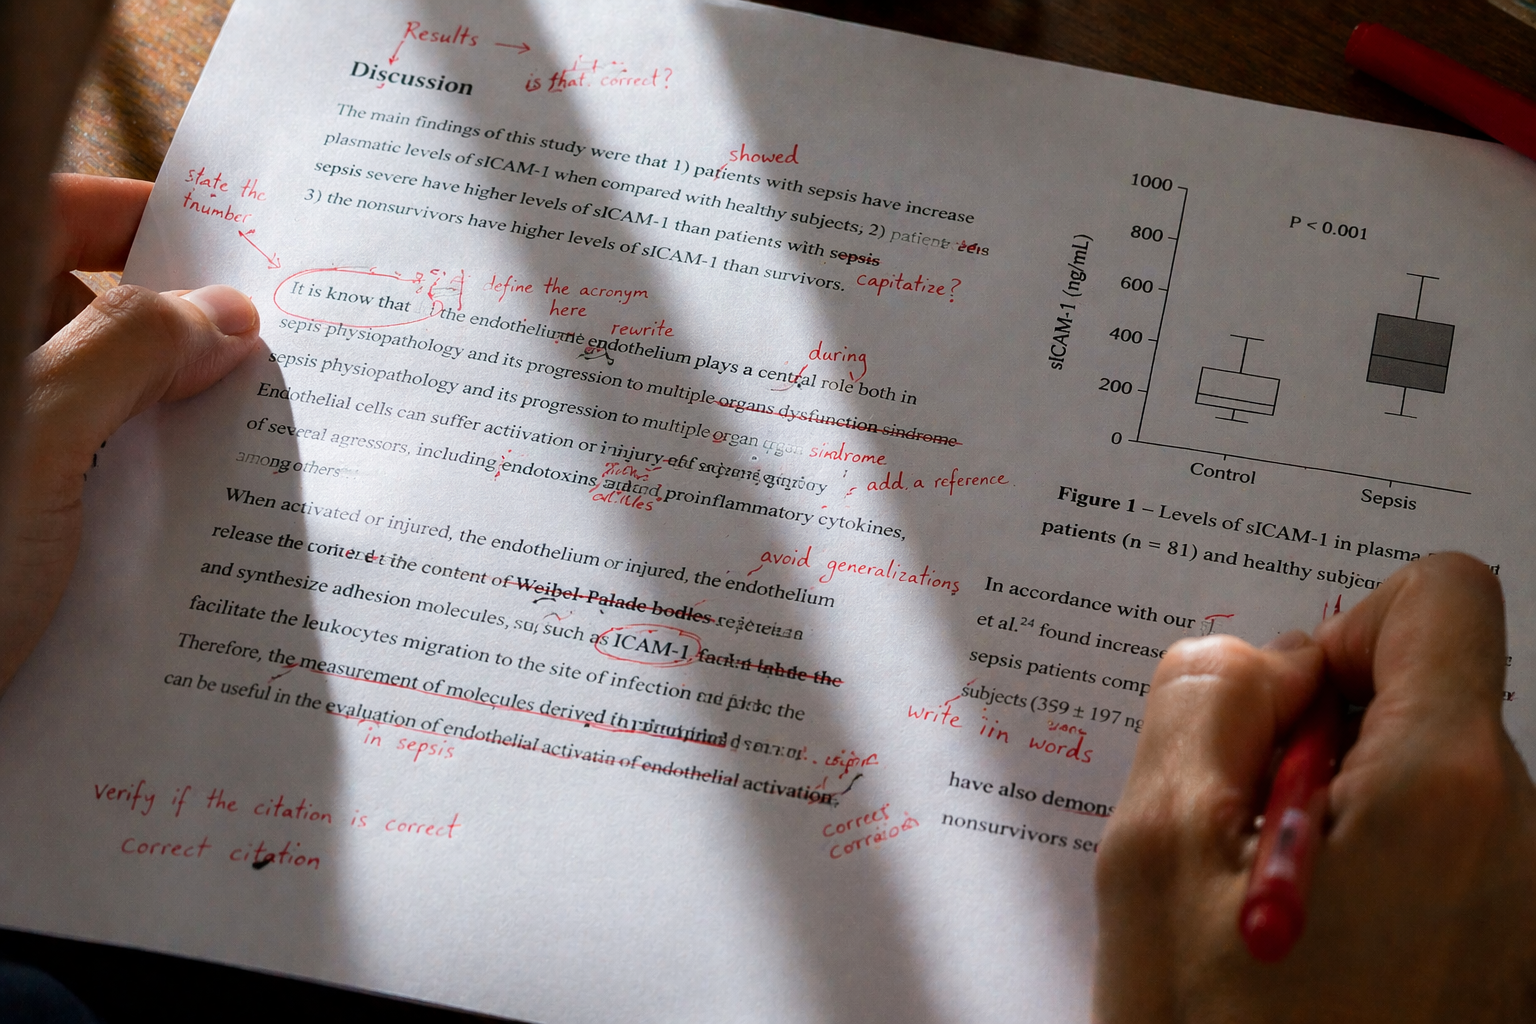 Results →
is that correct?
Discussion
The main findings of this study were that 1) patients with sepsis have increase
showed
plasmatic levels of sICAM-1 when compared with healthy subjects; 2) patient
sepsis severe have higher levels of sICAM-1 than patients with sepsis
3) the nonsurvivors have higher levels of sICAM-1 than survivors.
capitatize?
state the
tnumber
It is know that the endothelium endothelium plays a central role both in
define the acronym
here
rewrite
during
sepis physiopathology and its progression to multiple organs dysfunction sindrome
sepsis physiopathology and its progression to multiple organ
sindrome
Endothelial cells can suffer actiivation or injury
add a reference
of several agressors, including endotoxins, proinflammatory cytokines,
among others
When activated or injured, the endothelium or injured, the endothelium
avoid generalizations
release the the content of Weibel-Palade bodles
and synthesize adhesion molecules, such as ICAM-1 the
facilitate the leukocytes migration to the site of infection the
Therefore, the measurement of molecules derived
can be useful in the evaluation of endothelial activatin of endothelial activation.
in sepsis
correct
verify if the citation is correct
correct citation
1000
800
600
400
200
0
sICAM-1 (ng/mL)
P < 0.001
Control
Sepsis
Figure 1 – Levels of sICAM-1 in plasma
patients (n = 81) and healthy
In accordance with our
et al.²⁴ found increase
sepsis patients comp
subjects (359 ± 197 ng
write iin words
have also demons
nonsurvivors